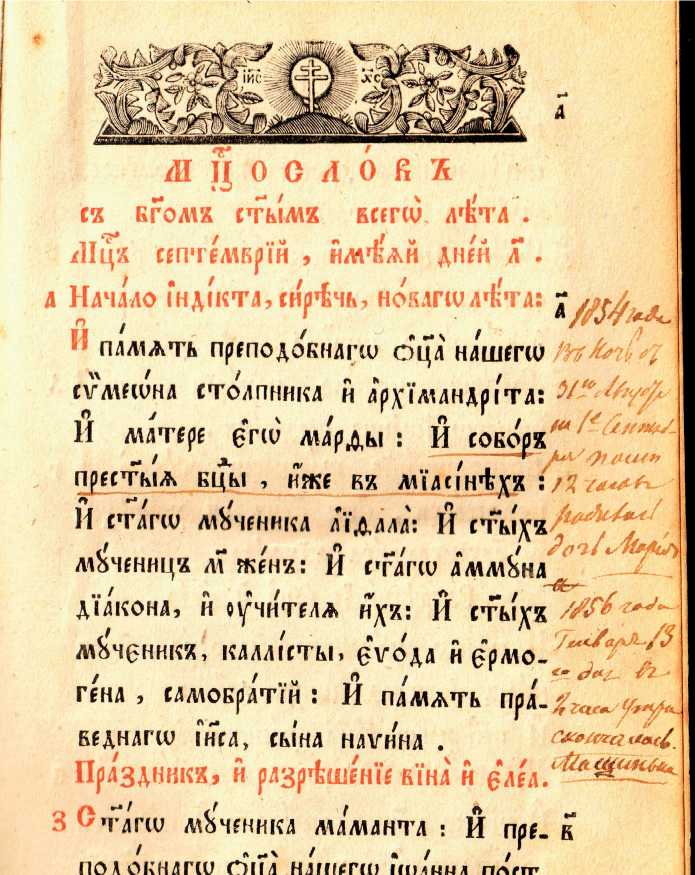 І҆И҃С Х҃С
а҃
МЦ҃ОСЛО́ВЪ
съ бг҃омъ ст҃ы́мъ всегѡ̀ лѣ́та .
Мц҃ъ септе́мврїй , и҆мѣ́ѧй дне́й л҃ .
а Нача́ло і҆нді́кта, си́рѣчь, но́вагѡ лѣ́та: а҃
И҆ па́мѧть преподо́бнагѡ ѻ҆ц҃а̀ на́шегѡ
сѷмеѡ́на сто́лпника и҆ а҆рхїмандрі́та:
И҆ ма́тере є҆гѡ̀ ма́рды : И҆ собо́ръ
прест҃ы́ѧ бц҃ы , и҆́же въ мїасі́нѣхъ :
И҆ ст҃а́гѡ мꙋ́ченика а҆їѳала̀: И҆ ст҃ы́хъ
мꙋ́ченицъ м҃ же́нъ: И҆ ст҃а́гѡ а҆ммꙋ́на
дїа́кона, и҆ ᲂу҆чи́телѧ и҆́хъ: И҆ ст҃ы́хъ
мꙋ́ченикъ, калли́сты, є҆ѵо́да и҆ є҆рмо-
ге́на , самобра́тїй : И҆ па́мѧть пра́-
веднагѡ і҆и҃са, сы́на наѵи́на .
Пра́здникъ, и҆ разрѣше́нїе вїна̀ и҆ є҆ле́а.
з Ст҃а́гѡ мꙋ́ченика ма́манта : И҆ пре- в҃
подо́бнагѡ ѻ҆ц҃а̀ на́шегѡ і҆ѡа́нна пост
1854 года
Въ ночь отъ
31го Августа
на 1е Сентяб-
ря
12 часовъ
родилась
дочь Марія
1856 года
Генваря 13
го дня въ
2 часа утра
скончалась
Машинька